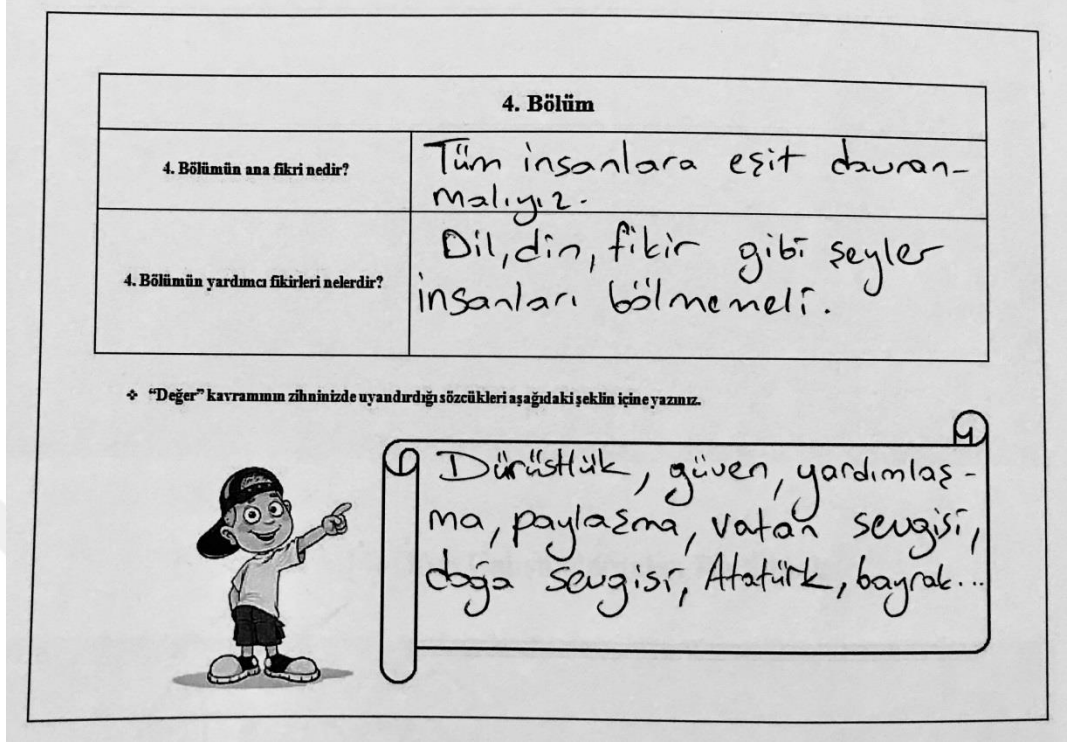 4. Bölüm
4. Bölümün ana fikri nedir?
Tüm insanlara eşit davran-
malıyız.
4. Bölümün yardımcı fikirleri nelerdir?
Dil, din, fikir gibi şeyler
insanları bölmemeli.
❖ “Değer” kavramının zihninizde uyandırdığı sözcükleri aşağıdaki şeklin içine yazınız.
Dürüstlük, güven, yardımlaş-
ma, paylaşma, vatan sevgisi,
doğa sevgisi, Atatürk, bayrak...